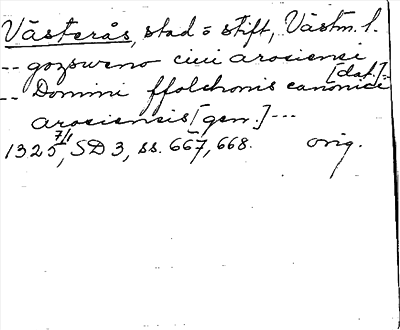 Västerås, stad o stift, Västm. l.
-- gozsweno ciui arosiensi
[dat.] --
-- Domini ffolchonis canonici
arosiensis [gen.] ---
1325 7/1, SD 3, ss. 667, 668. orig.